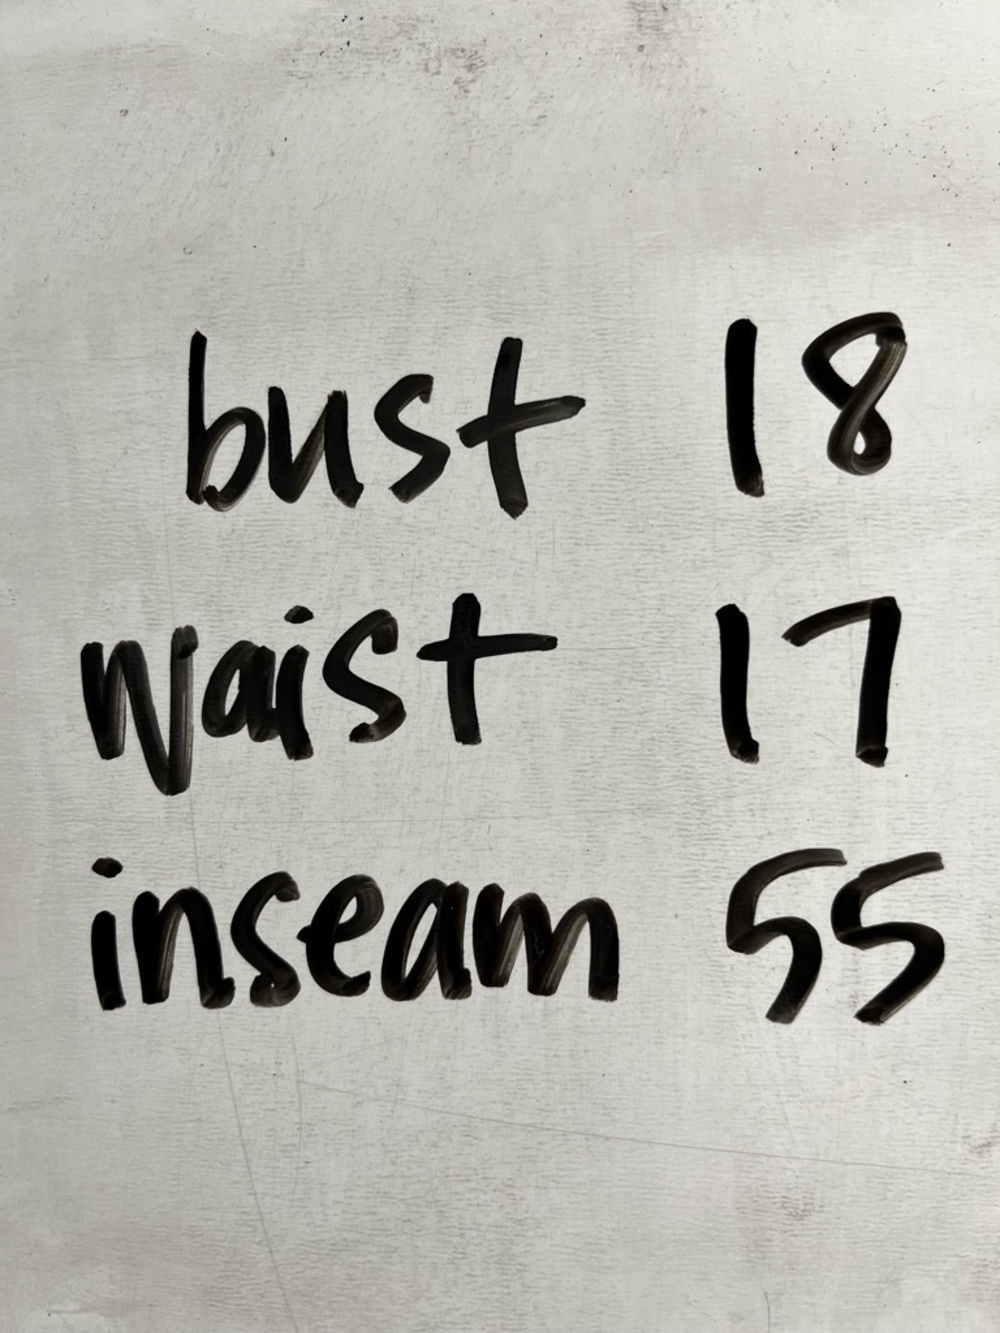 bust 18
waist 17
inseam 55